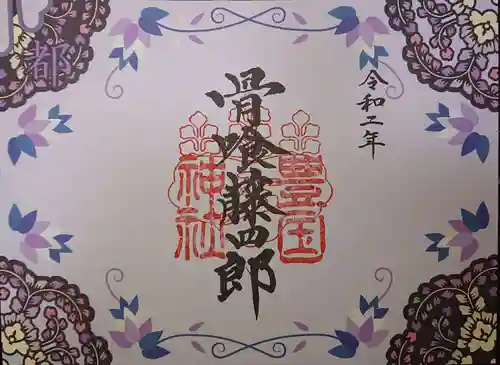 令和二年
骨喰藤四郎
豊国
神社
都